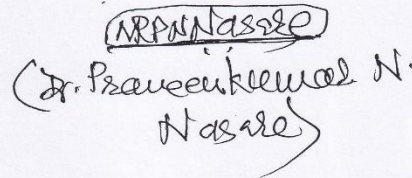 NRPNNasare
(Dr. Praveenkumar N.
Nasare)